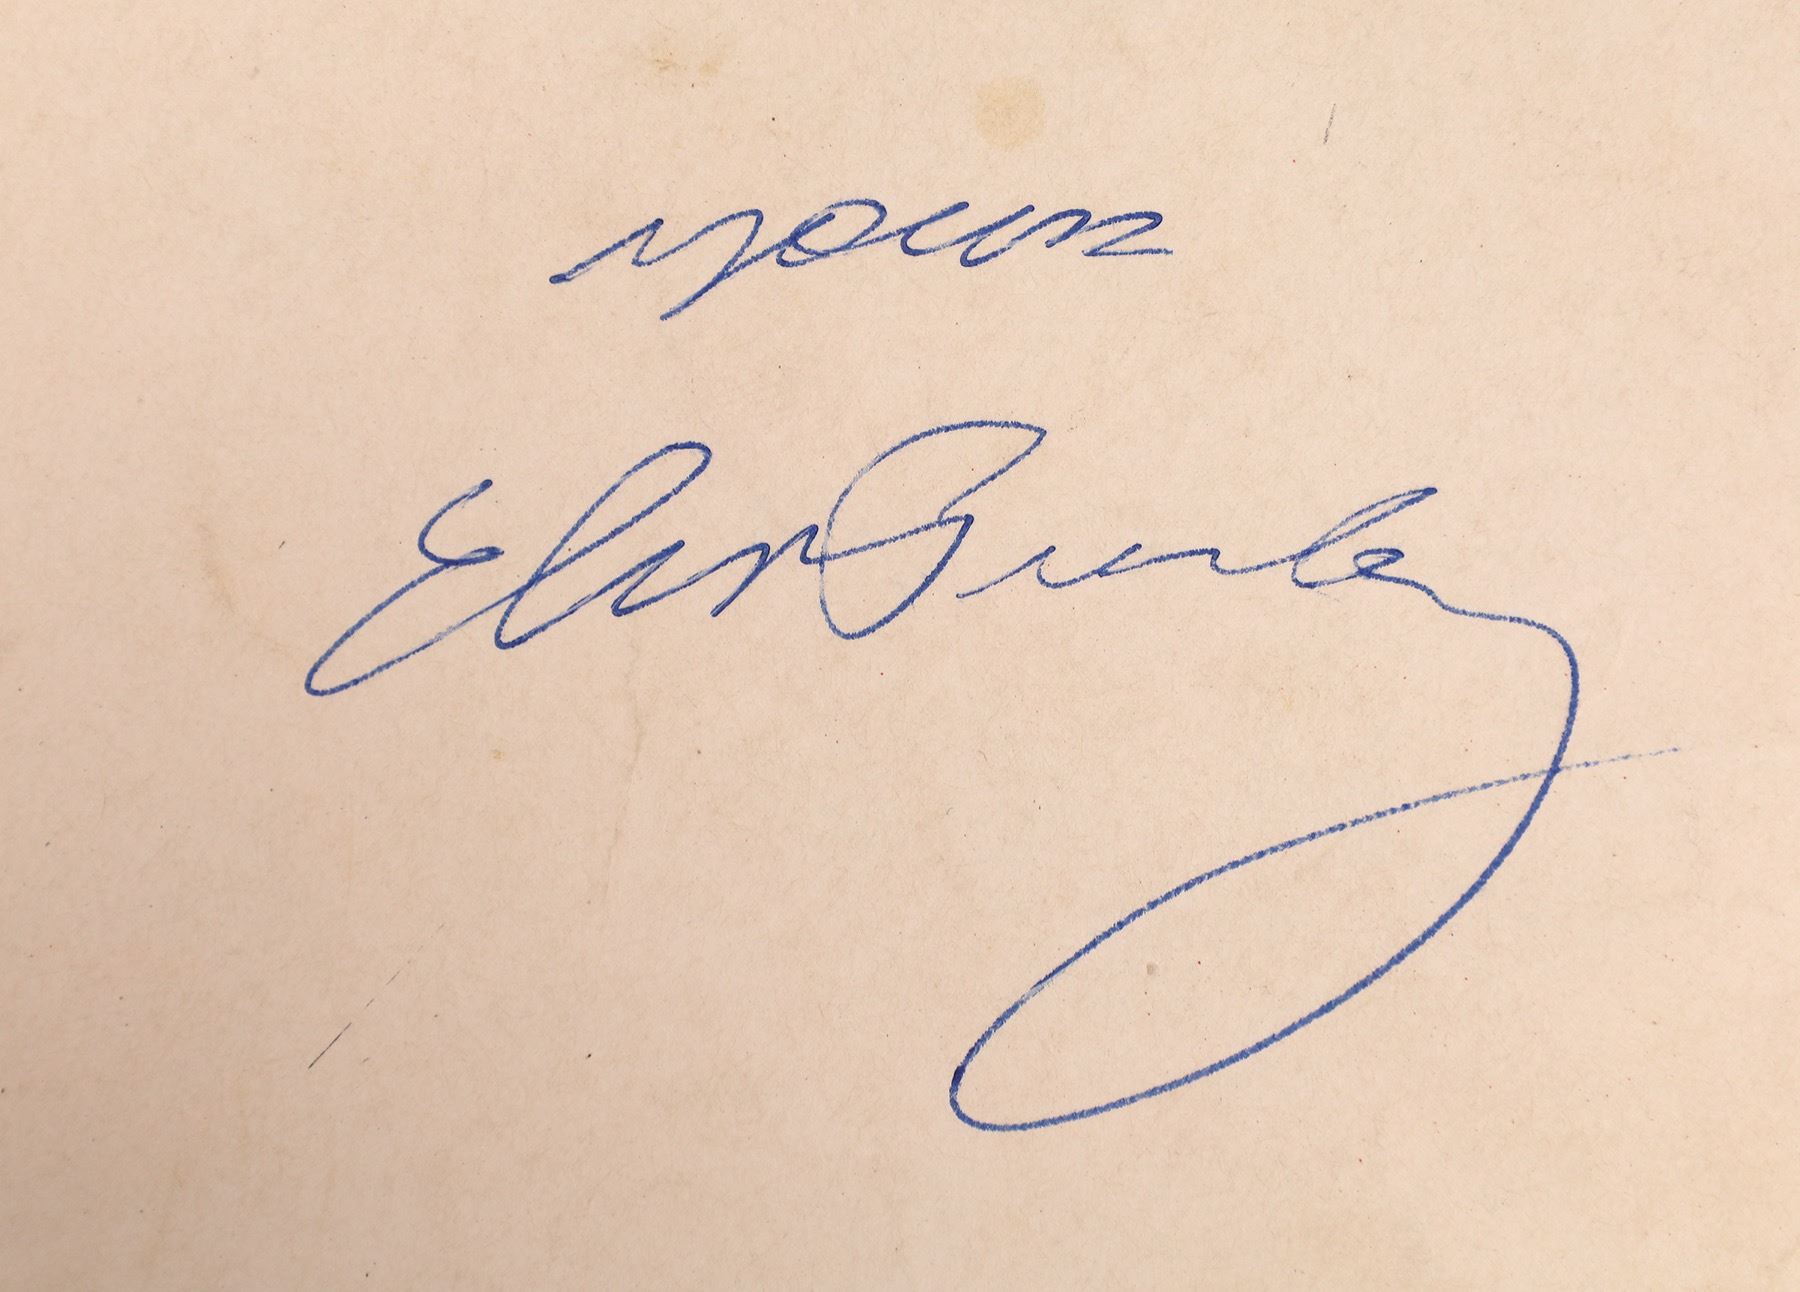 Yours
Elvis Presley